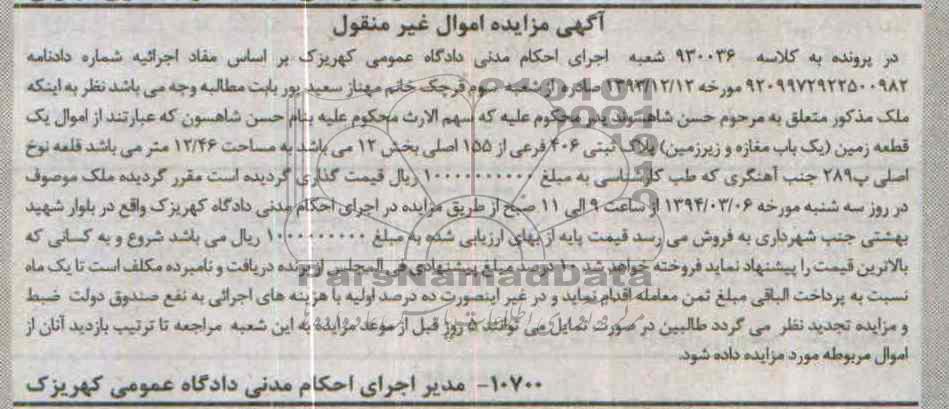 آگهی مزایده اموال غیر منقول
در پرونده به کلاسه ۹۳۰۰۳۶ شعبه اجرای احکام مدنی دادگاه عمومی کهریزک بر اساس مفاد اجرائیه شماره دادنامه
۹۲۰۹۹۷۲۹۲۲۵۰۰۹۸۲ مورخه ۱۳۹۳/۱۲/۱۲ صادره از شعبه سوم قرچک خانم مهناز سعید پور بابت مطالبه وجه می باشد نظر به اینکه
ملک مذکور متعلق به مرحوم حسن شاهسوند پدر محکوم علیه که سهم الارث محکوم علیه بنام حسن شاهسون که عبارتند از اموال یک
قطعه زمین (یک باب مغازه و زیرزمین) پلاک ثبتی ۴۰۶ فرعی از ۱۵۵ اصلی بخش ۱۲ می باشد به مساحت ۱۲/۴۶ متر می باشد قلعه نوخ
اصلی پ۲۸۹ جنب آهنگری که طب کارشناسی به مبلغ ۱۰۰۰۰۰۰۰۰۰۰ ریال قیمت گذاری گردیده است مقرر گردیده ملک موصوف
در روز سه شنبه مورخه ۱۳۹۴/۰۳/۰۶ از ساعت ۹ الی ۱۱ صبح از طریق مزایده در اجرای احکام مدنی دادگاه کهریزک واقع در بلوار شهید
بهشتی جنب شهرداری به فروش می رسد قیمت پایه از بهای ارزیابی شده به مبلغ ۱۰۰۰۰۰۰۰۰۰۰ ریال می باشد شروع و به کسانی که
بالاترین قیمت را پیشنهاد نماید فروخته خواهد شد ۱۰ درصد مبلغ پیشنهادی فی المجلس از برنده دریافت و نامبرده مکلف است تا یک ماه
نسبت به پرداخت الباقی مبلغ ثمن معامله اقدام نماید و در غیر اینصورت ده درصد اولیه با هزینه های اجرائی به نفع صندوق دولت ضبط
و مزایده تجدید نظر می گردد طالبین در صورت تمایل می توانند ۵ روز قبل از موعد مزایده به این شعبه مراجعه تا ترتیب بازدید آنان از
اموال مربوطه مورد مزایده داده شود.
۱۰۷۰۰- مدیر اجرای احکام مدنی دادگاه عمومی کهریزک
ParsNamadData